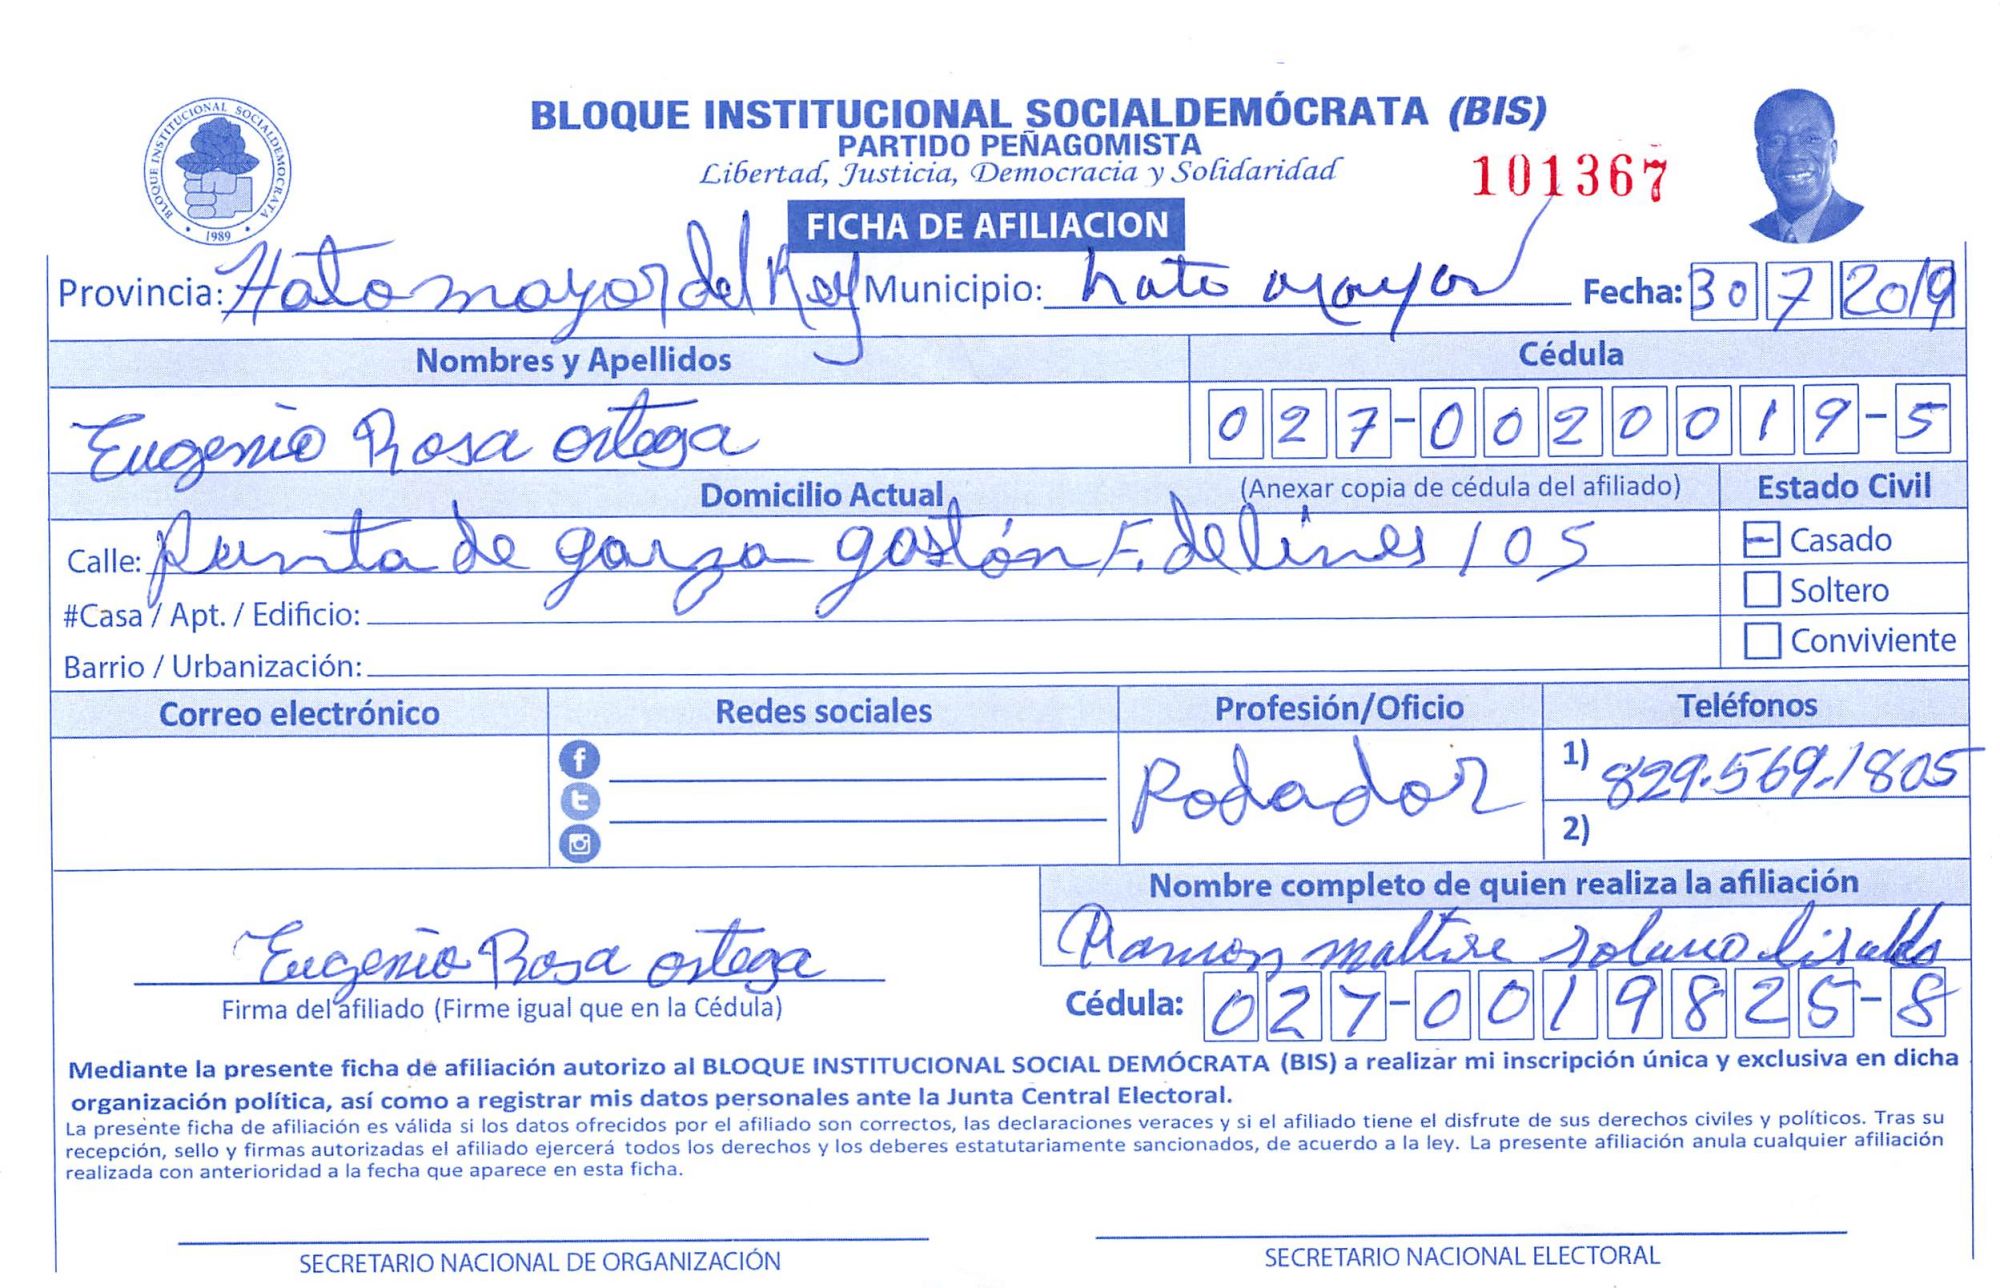 BLOQUE INSTITUCIONAL SOCIALDEMÓCRATA (BIS)
PARTIDO PEÑAGOMISTA
Libertad, Justicia, Democracia y Solidaridad
101367
BLOQUE INSTITUCIONAL SOCIALDEMOCRATA
1989
FICHA DE AFILIACION
Provincia: Hato mayor del Rey Municipio: hato mayor Fecha: 30 7 2019
Nombres y Apellidos Cédula
Eugenio Rosa ortega 027-0020019-5
Domicilio Actual (Anexar copia de cédula del afiliado) Estado Civil
Calle: punta de garza gastón F. delines 105 Casado
#Casa / Apt. / Edificio: Soltero
Barrio / Urbanización: Conviviente
Correo electrónico Redes sociales Profesión/Oficio Teléfonos
Podador 1) 829.569.1805
2)
Nombre completo de quien realiza la afiliación
Eugenio Rosa ortega Ramon solano
Firma del afiliado (Firme igual que en la Cédula) Cédula: 027-0019825-8
Mediante la presente ficha de afiliación autorizo al BLOQUE INSTITUCIONAL SOCIAL DEMÓCRATA (BIS) a realizar mi inscripción única y exclusiva en dicha
organización política, así como a registrar mis datos personales ante la Junta Central Electoral.
La presente ficha de afiliación es válida si los datos ofrecidos por el afiliado son correctos, las declaraciones veraces y si el afiliado tiene el disfrute de sus derechos civiles y políticos. Tras su
recepción, sello y firmas autorizadas el afiliado ejercerá todos los derechos y los deberes estatutariamente sancionados, de acuerdo a la ley. La presente afiliación anula cualquier afiliación
realizada con anterioridad a la fecha que aparece en esta ficha.
SECRETARIO NACIONAL DE ORGANIZACIÓN SECRETARIO NACIONAL ELECTORAL